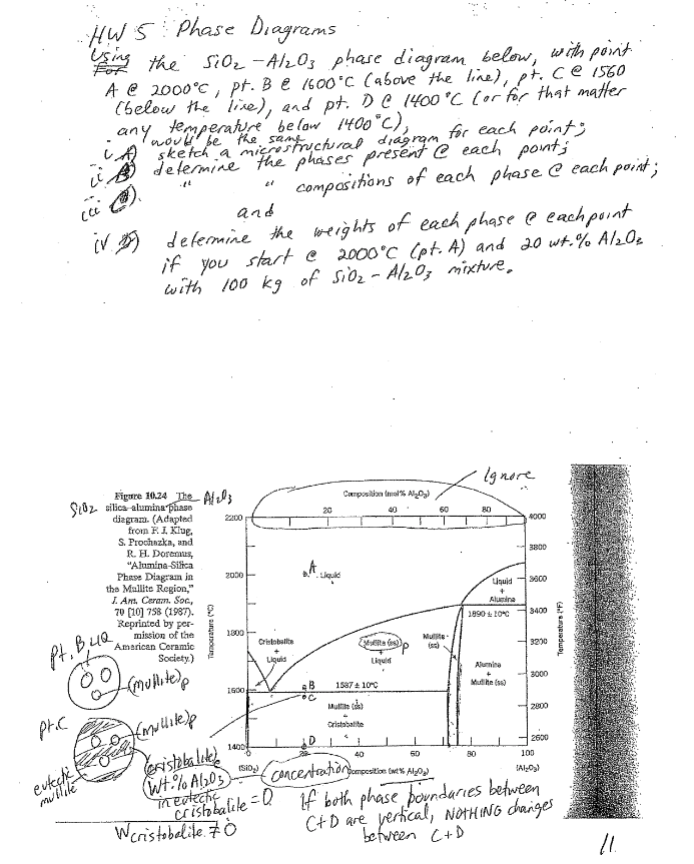 HW 5 Phase Diagrams
Using the SiO2-Al2O3 phase diagram below, with point
A @ 2000°C, pt. B @ 1600°C (above the line), pt. C @ 1560
(below the line), and pt. D @ 1400°C (or for that matter
any temperature below 1400°C),
would be the same
i sketch a microstructural diagram for each point;
ii determine the phases present @ each point;
iii " " compositions of each phase @ each point;
and
iv determine the weights of each phase @ each point
if you start @ 2000°C (pt. A) and 20 wt.% Al2O3
with 100 kg of SiO2-Al2O3 mixture.
Ignore
SiO2 Al2O3
Figure 10.24 The
silica-alumina phase
diagram. (Adapted
from F. J. Klug,
S. Prochazka, and
R. H. Doremus,
"Alumina-Silica
Phase Diagram in
the Mullite Region,"
J. Am. Ceram. Soc.,
70 [10] 758 (1987).
Reprinted by per-
mission of the
American Ceramic
Society.)
Composition (mol% Al2O3)
20 40 60 80
2200 4000
3800
2000 A Liquid 3600
Liquid
+
Alumina
3400
1890 ± 10°C
1800
Cristobalite
+
Liquid
Mullite (ss) p
+
Liquid
Mullite
(ss)
3200
Alumina
+
Mullite (ss)
3000
1600 B 1587 ± 10°C
C
2800
Mullite (ss)
+
Cristobalite
2600
1400 D
0 20 40 60 80 100
(SiO2) Composition (wt% Al2O3) (Al2O3)
Temperature (°C)
Temperature (°F)
Pt. B LIQ
(mullite)p
Pt. C
(mullite)p
eutectic
mullite
(cristobalite)
wt.% Al2O3
in eutectic
cristobalite = 0
concentration
W cristobalite ≠ 0
If both phase boundaries between
C+D are vertical, NOTHING changes
between C+D
11